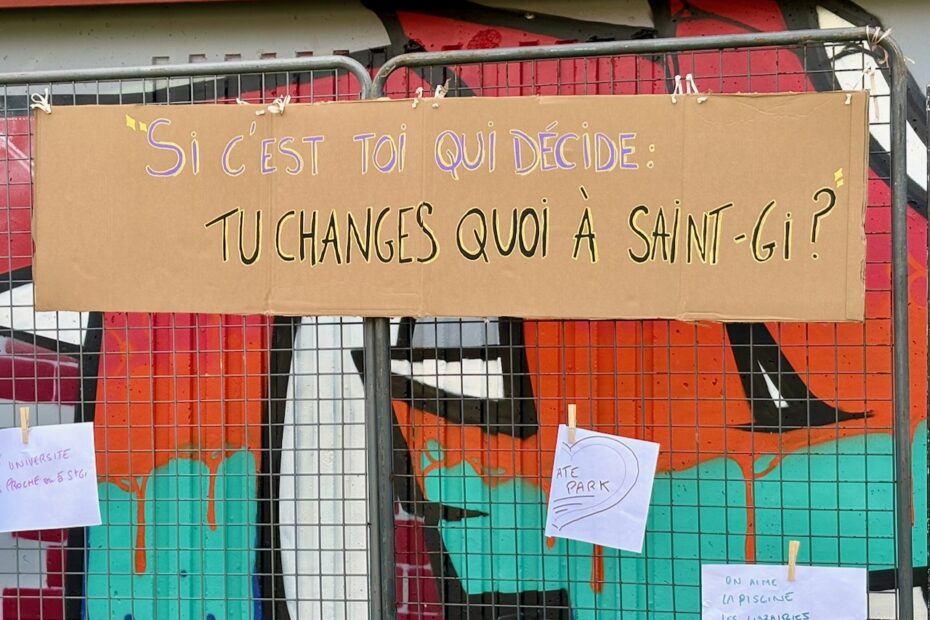 "SI C'EST TOI QUI DÉCIDE :
TU CHANGES QUOI À SAINT-GI ?"
UNIVERSITÉ
PROCHE
ATE
PARK
ON AIME
LA PISCINE
LES LIBRAIRIES